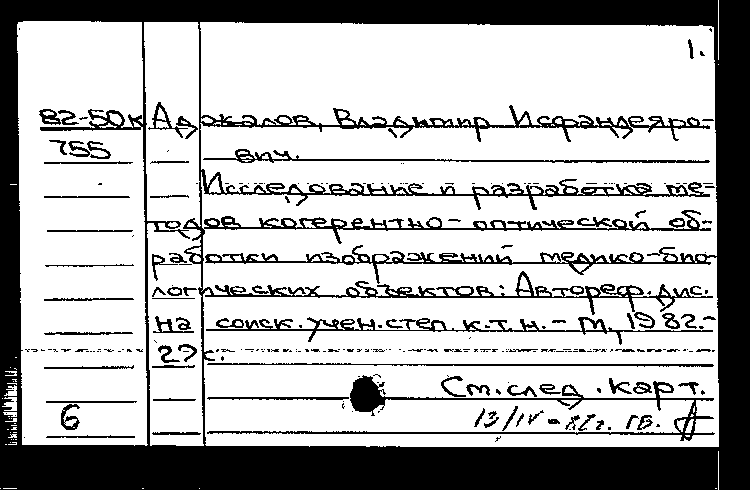 1.
82-50к Аджалов, Владимир Исфандеяро-
755 вич.
Исследование и разработка ме-
тодов когерентно-оптической об-
работки изображений медико-био-
логических объектов: Автореф. дис.
на соиск. учен. степ. к.т.н. - М., 1982.-
22 с.
См. след. карт.
6 13/IV-82г. ГВ.